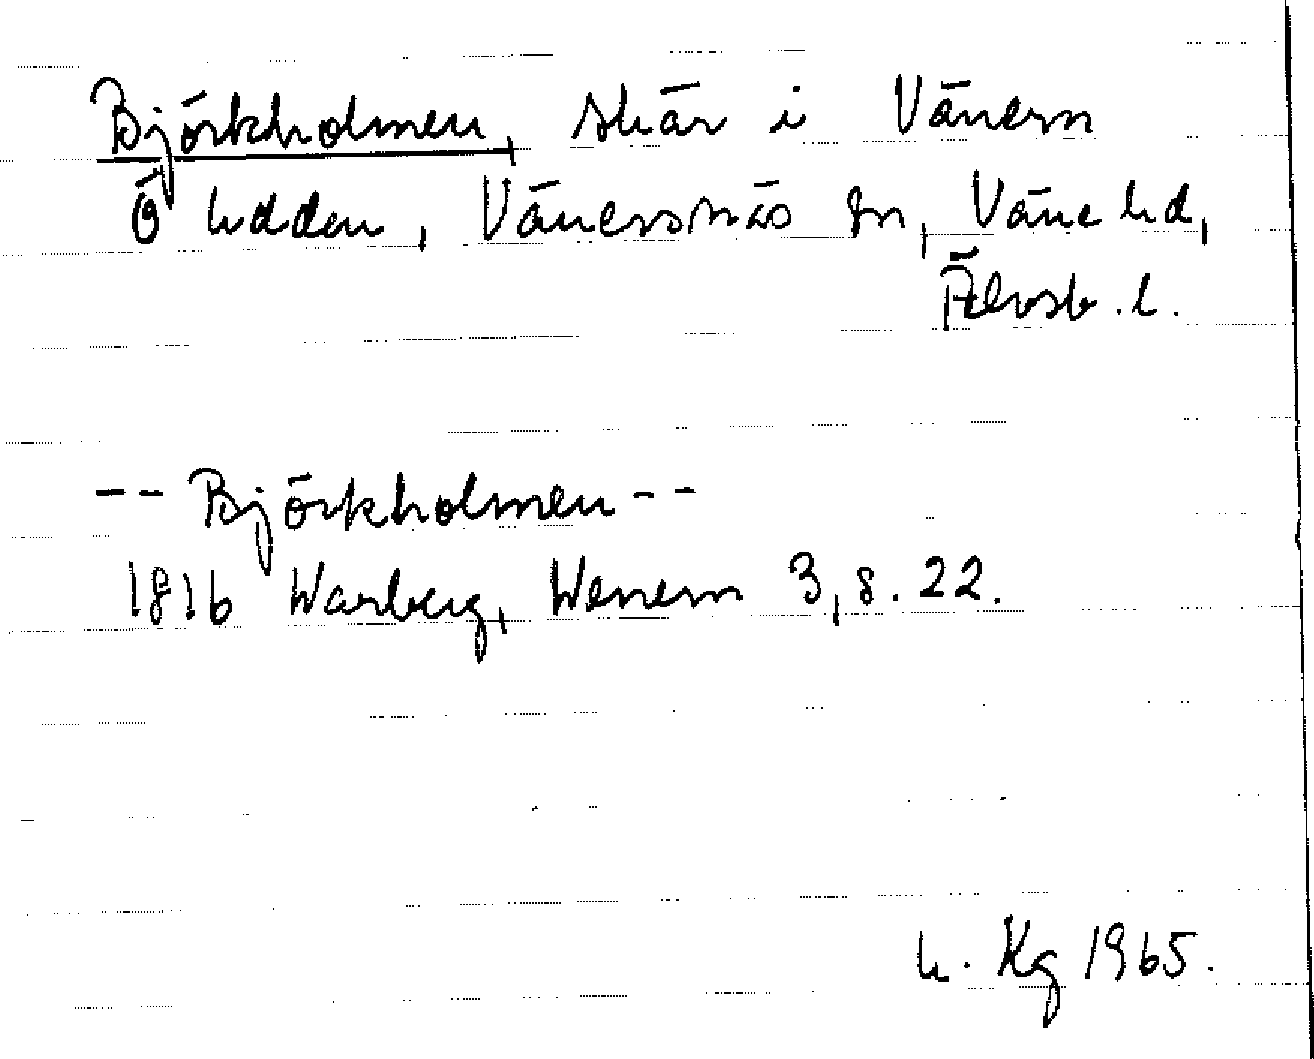 Björkholmen, skär i Vänern
Ö Udden, Vänersnäs sn, Väne hd,
Älvsb. l.
-- Björkholmen --
1816 Warberg, Wenern 3, s. 22.
Kg 1965.